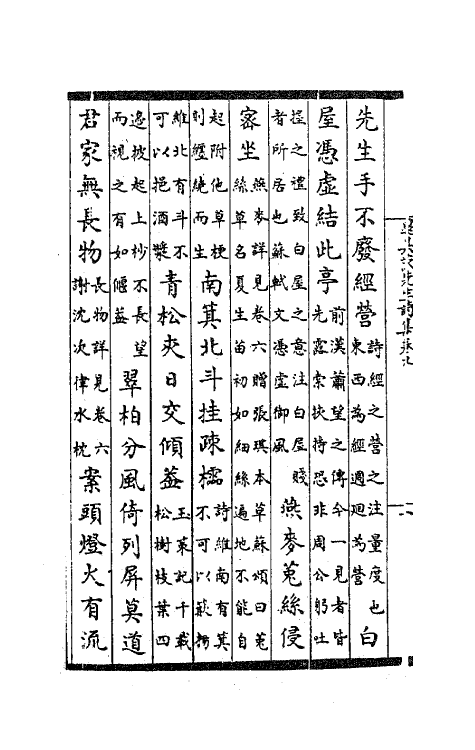 先生手不廢經營詩經之營之注量度也東西為經週廻為營白
屋憑虛結此亭前漢蕭望之傳今一見者皆先露索挾持恐非周公躬吐
握之禮致白屋之意注白屋賤者所居也蘇軾文憑虛御風燕麥菟絲侵
宻坐燕麥詳見卷六贈張琪本草蘇頌曰菟絲草名夏生苗初如細絲遍地不能自
起附他草梗則纏繞而生南箕北斗挂疎櫺詩維南有箕不可以簸揚
維北有斗不可以挹酒漿青松夾日交傾葢玉策記千載松樹枝葉四
邉披起上杪不長望而視之有如偃葢翠柏分風倚列屏莫道
君家無長物長物詳見卷六謝沈次律水枕案頭燈火有流
先生詩集卷九